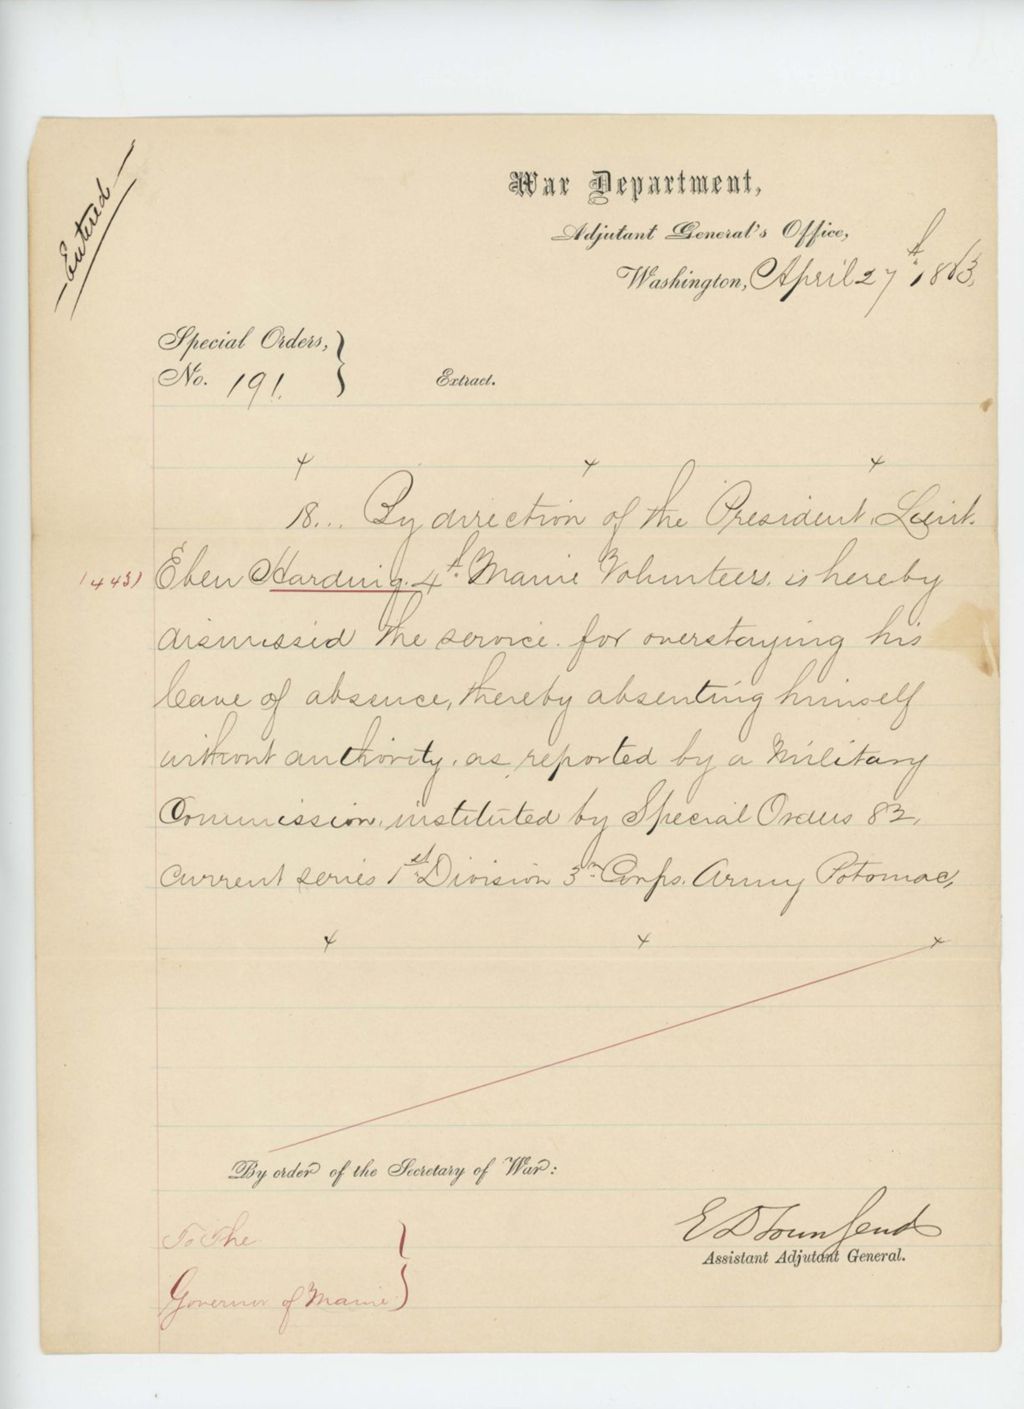 Entered
War Department,
Adjutant General's Office,
Washington, April 27th, 1863,
Special Orders,
No. 191.
Extract.
x x x
18... By direction of the President, Lieut.
(443) Eben Harding. 4th. Maine Volunteers, is hereby
dismissed the service. for overstaying his
leave of absence, thereby absenting himself
without authority, as reported by a Military
Commission, instituted by Special Orders 82,
current series 1st Division 3rd Corps. Army Potomac,
x x x
By order of the Secretary of War:
To The
Governor of Maine
E D Townsend
Assistant Adjutant General.